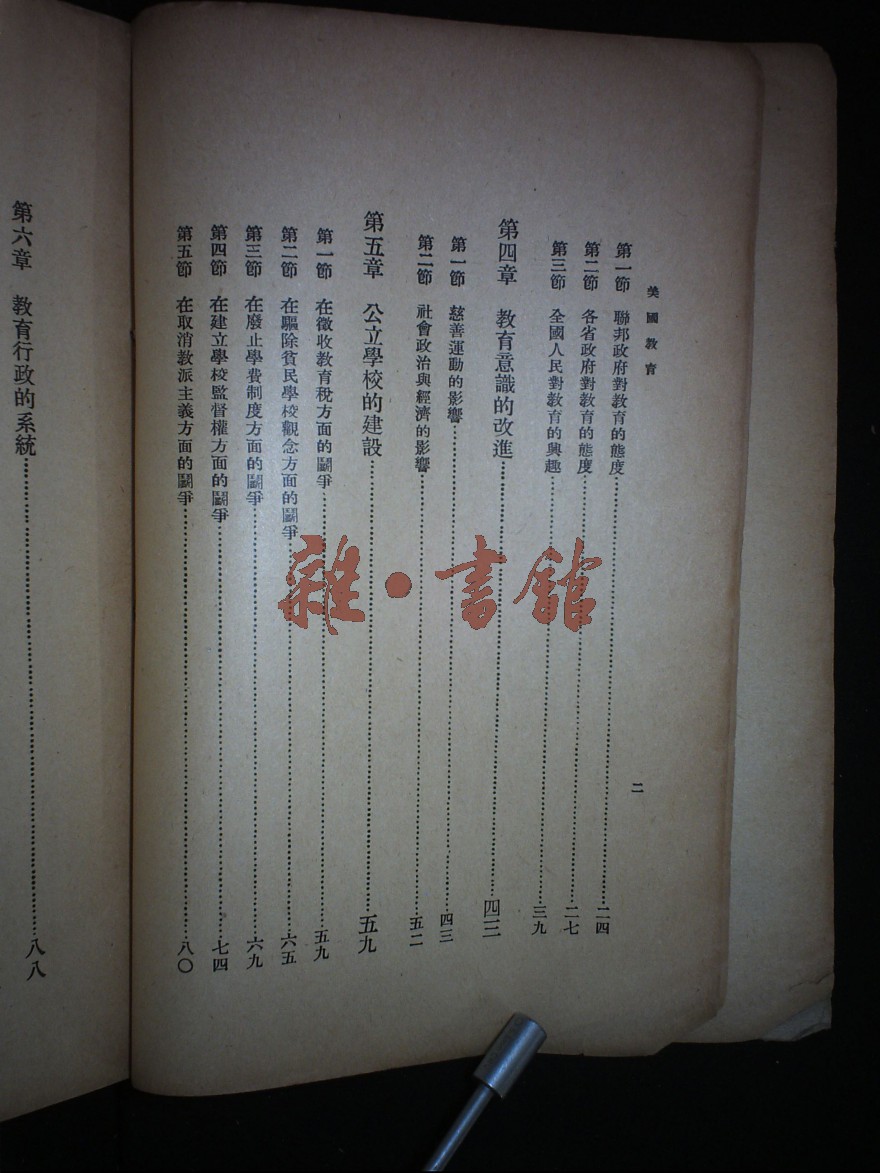 美國教育
二
第一節 聯邦政府對教育的態度……二四
第二節 各省政府對教育的態度……二七
第三節 全國人民對教育的興趣……三九
第四章 教育意識的改進……四三
第一節 慈善運動的影響……四三
第二節 社會政治與經濟的影響……五二
第五章 公立學校的建設……五九
第一節 在徵收教育稅方面的鬭爭……五九
第二節 在驅除貧民學校觀念方面的鬭爭……六五
第三節 在廢止學費制度方面的鬭爭……六九
第四節 在建立學校監督權方面的鬭爭……七四
第五節 在取消教派主義方面的鬭爭……八〇
第六章 教育行政的系統……八八
雜·書館